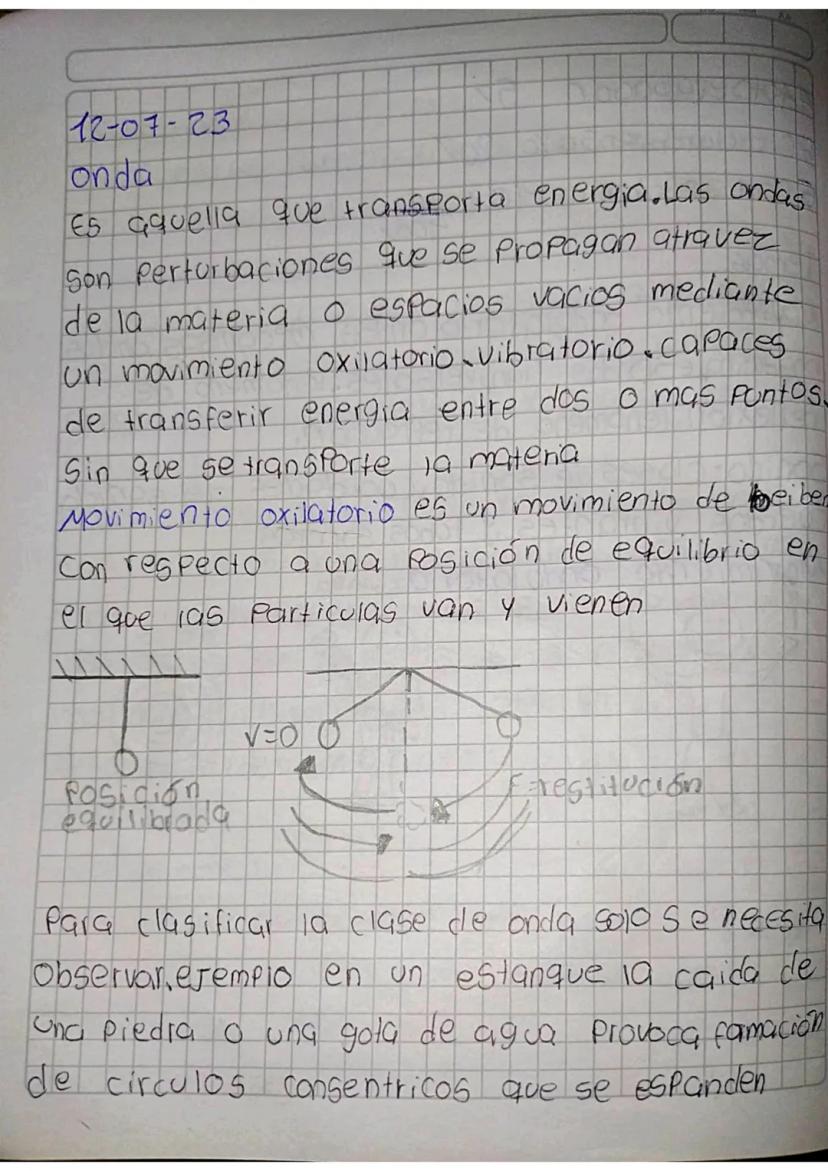 12-07-23
onda
Es aquella que transporta energia. Las ondas
son perturbaciones que se propagan atravez
de la materia o espacios vacios mediante
un movimiento oxilatorio, vibratorio. capaces
de transferir energia entre dos o mas puntos,
Sin que se transporte la materia
Movimiento oxilatorio es un movimiento de beiben
Con respecto a una posición de equilibrio en
el que las particulas van y vienen
V=0
F=restitución
Posición
equilibrada
Para clasificar la clase de onda solo se necesita
Observar, ejemplo en un estanque la caida de
una piedra o una gota de agua provoca famación
de circulos consentricos que se espanden